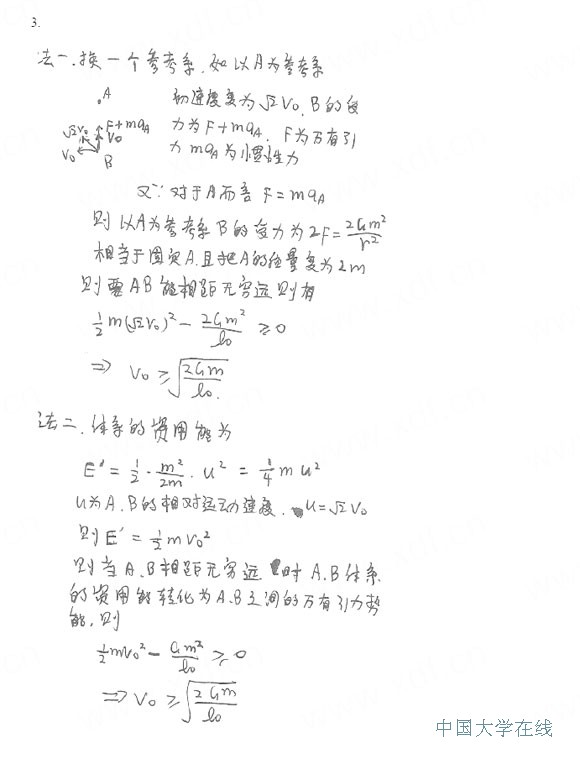 3.
法一、换一个参考系,如以A为参考系
A
初速度变为√2 V₀, B的受
√2V₀ F+ma_A
V₀
V₀
B
力为F+ma_A, F为万有引
力 ma_A为惯性力
又∵对于A而言 F=ma_A
则以A为参考系B的受力为2F=2Gm²/r²
相当于固定A,且把A的质量变为2m
则要AB能相距无穷远则有
1/2 m(√2 V₀)² - 2Gm²/l₀ ≥0
⇒ V₀ ≥ √(2Gm/l₀).
法二、体系的资用能为
E' = 1/2 · m²/2m · u² = 1/4 m u²
u为A、B的相对运动速度. u=√2 V₀
则E' = 1/2 mV₀²
则当A、B相距无穷远时A、B体系
的资用能转化为A、B之间的万有引力势
能,则
1/2 mV₀² - Gm²/l₀ ≥0
⇒ V₀ ≥ √(2Gm/l₀)
中国大学在线